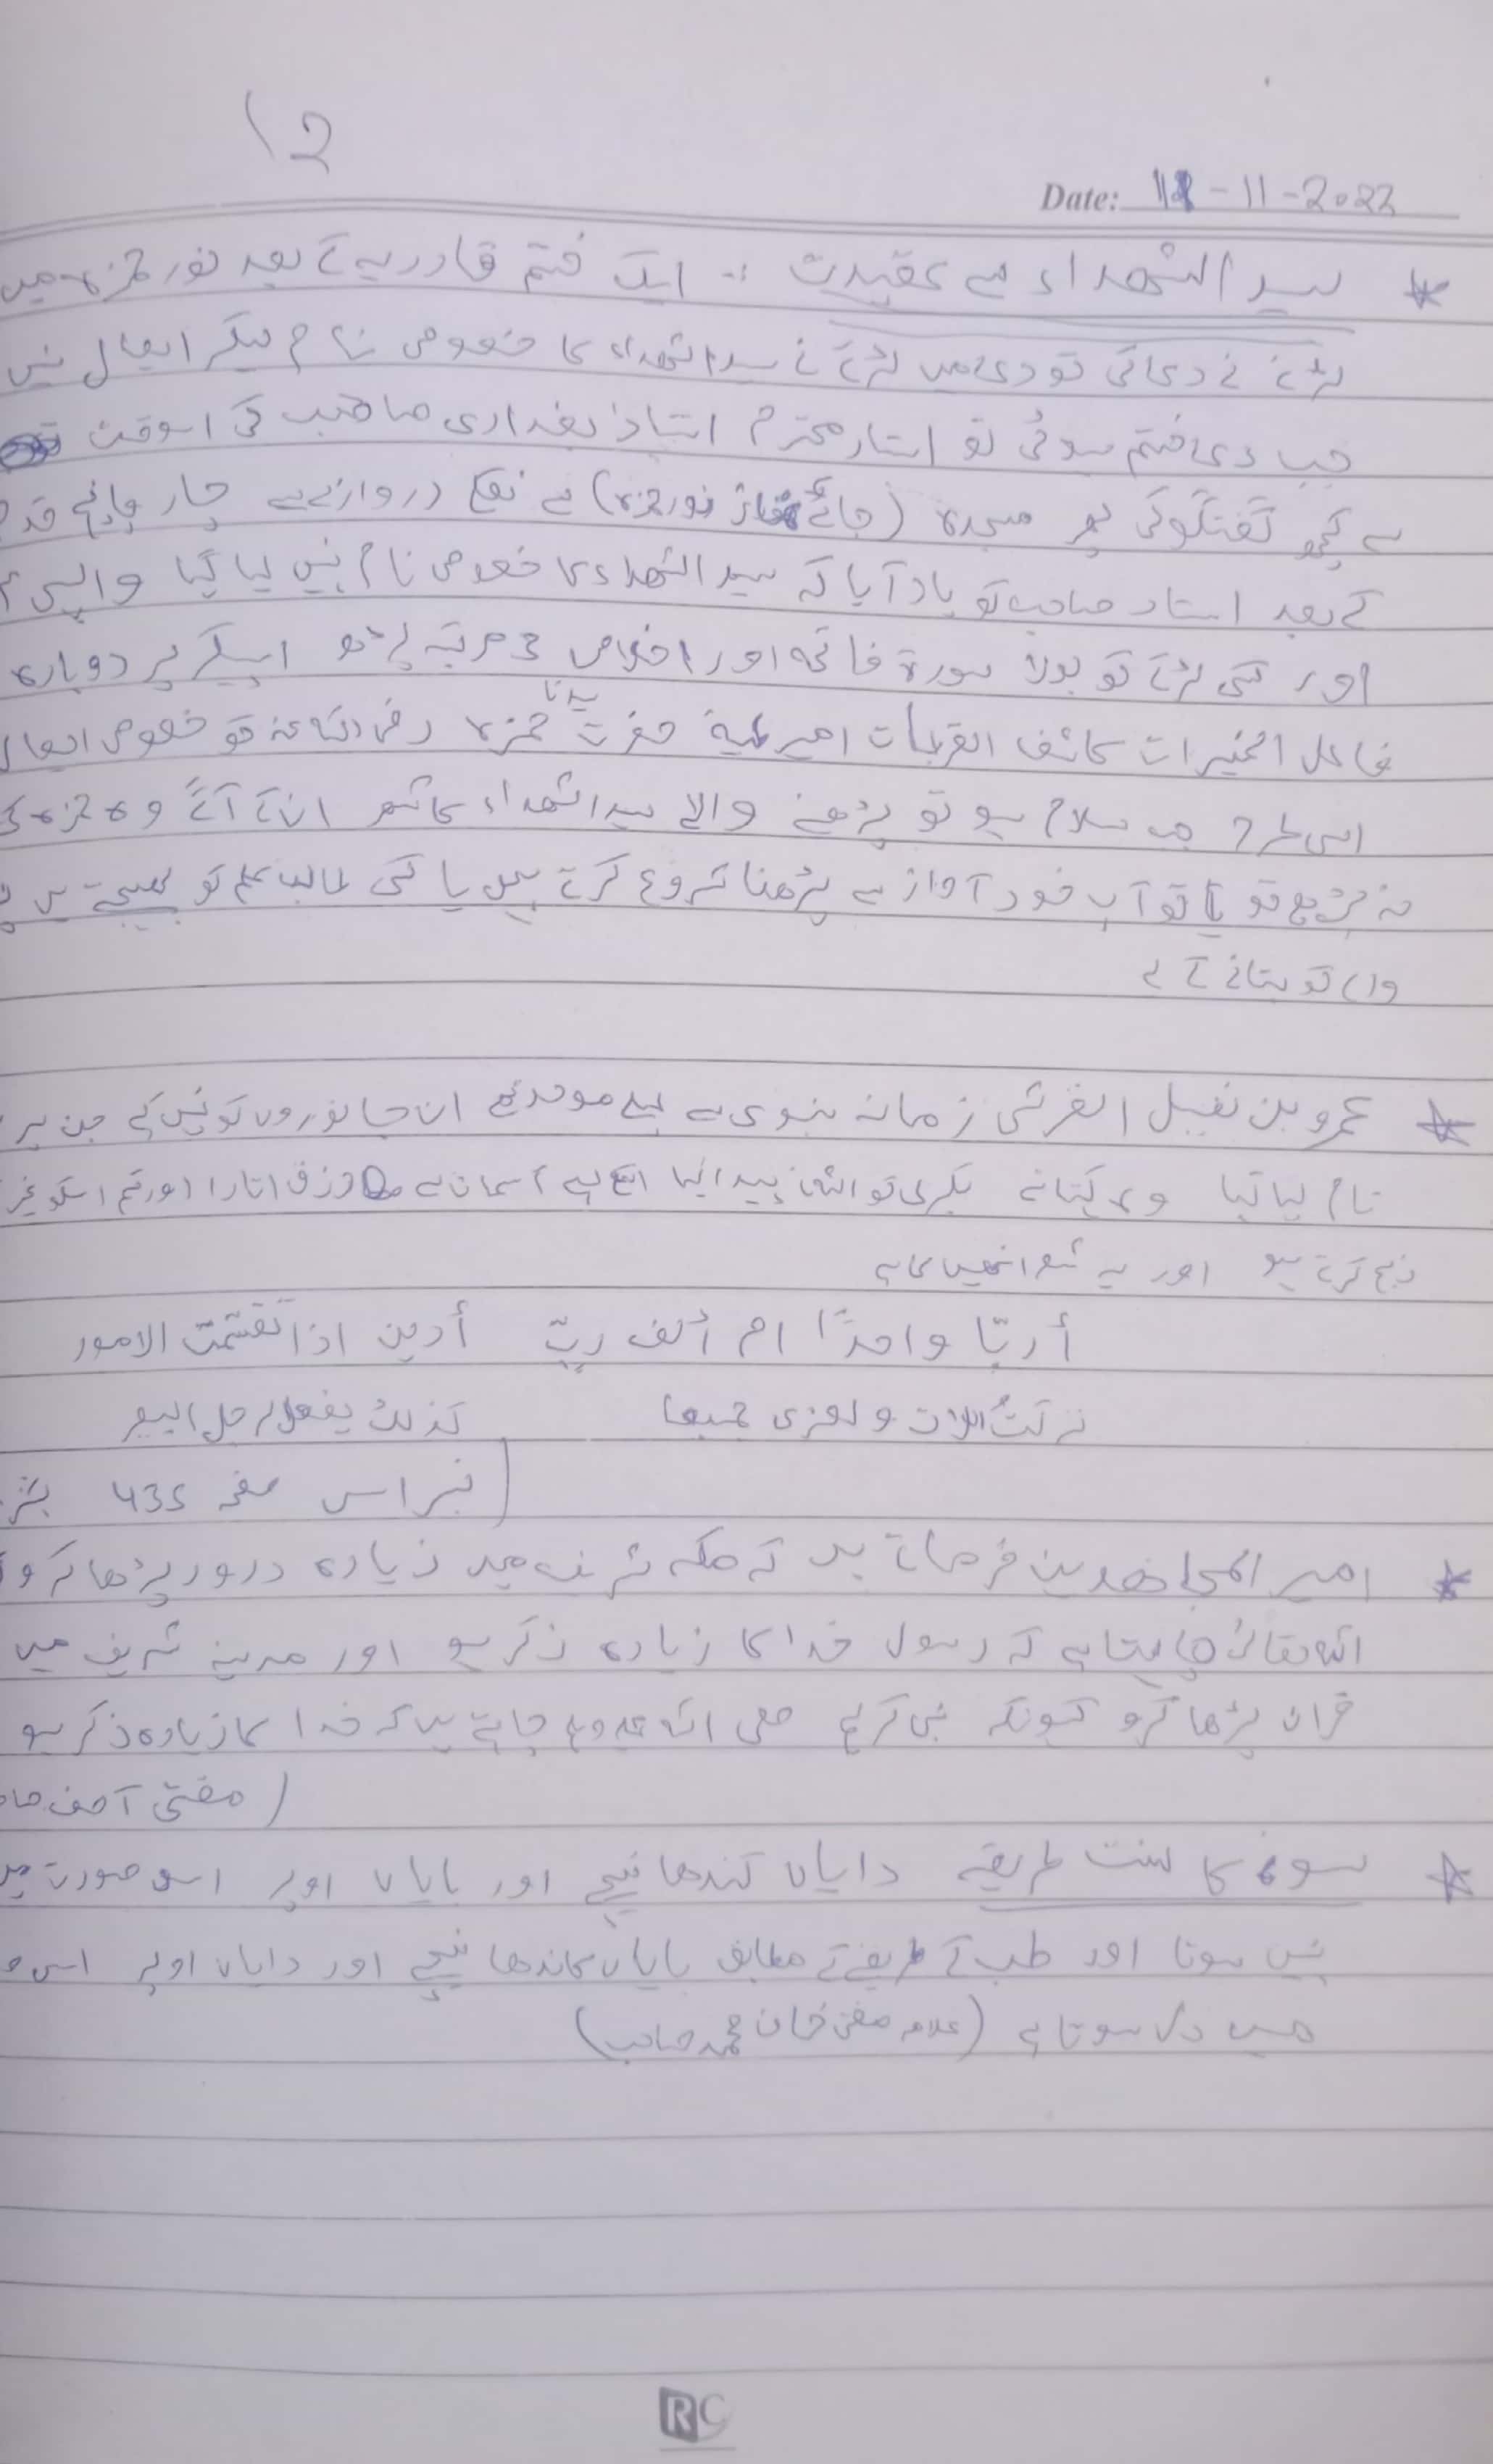 12
Date: 18-11-2022
* سید الشھداء سے عقیدت :- ایک ختم قادریہ کے بعد نور حمزہ میں
لڑکے نے دعا کی تو دعا میں لڑکے نے سید الشھداء کا خصوصی نام لیکر ایصال نہیں
جب دعا ختم ہوئی تو استاد محترم استاذ بغدادی صاحب کی اسوقت
سے کچھ گفتگو کی پھر مسجدہ (جائے نماز نور حمزہ) سے نکلے دروازے سے چار پانچ قد
کے بعد استاد صاحب کو یاد آیا کہ سید الشھداء کا خصوصی نام نہیں لیا گیا واپس
اور کسی لڑکے کو بولا سورۃ فاتحہ اور اخلاص 3 مرتبہ پڑھو اسپیکر پر دوبارہ
فاعل الخیرات کاشف الکربات امیر طیبہ حضرت سیدنا حمزہ رضی اللہ عنہ کو خصوصی ایصال
اسی طرح جب سلام ہو تو پڑھنے والے سید الشھداء کا شعر انکے آگے وہ حمزہ کی
نہ پڑھے تو یا تو آپ خود آواز سے پڑھنا شروع کرتے ہیں یا کسی طالب علم کو بھیجتے ہیں
والے کو بتانے کے لے
* عمرو بن نفیل القرشی زمانہ نبوی سے پہلے موحد تھے ان جانوروں کو نہیں کھاتے جن پر
نام لیا گیا وہ کہتا تھا بکری کو اللہ نے پیدا کیا اسکے لیے آسمان سے رزق اتارا اور تم اسکو غیر
ذبح کرتے ہو اور یہ شعر انھیں کا ہے
أربّا واحدًا ام ألف ربّ أدین اذا تقسّمت الامور
ترکت اللات و لعزی جمیعا کذلک یفعل لرجل البصیر
(نبراس صفحہ 435
* امیر المجاھدین فرماتے ہیں کہ مکہ شریف میں زیادہ درود پڑھا کرو
اللہ تعالیٰ چاہتا ہے کہ رسول خدا کا زیادہ ذکر ہو اور مدینہ شریف میں
قران پڑھا کرو کیونکہ نبی کریم صلی اللہ علیہ وسلم چاہتے ہیں کہ خدا کا زیادہ ذکر ہو
(مفتی آصف صا
* سونے کا سنت طریقہ دایاں کندھا نیچے اور بایاں اوپر اس صورت میں
نہیں ہوتا اور طب کے طریقے کے مطابق بایاں کاندھا نیچے اور دایاں اوپر اس
میں دل ہوتا ہے (علامہ مفتی خان محمد صاحب)
RC